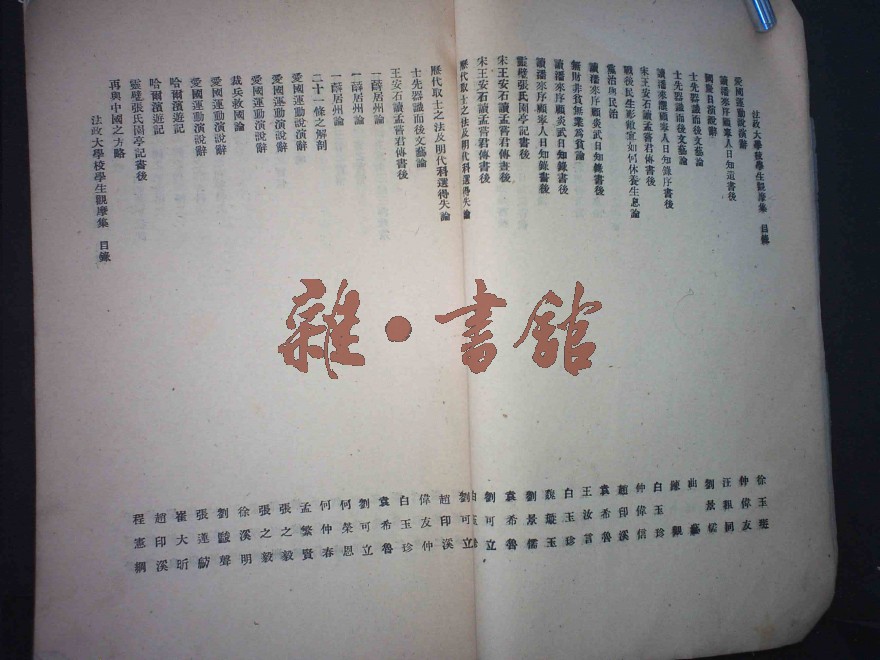 法政大學校學生觀摩集　目錄
愛國運動演說辭
讀潘來序顧寧人日知道書後
國慶日演說辭
士先器識而後文藝論
士先器識而後文藝論
讀潘耒序顧寧人日知錄序書後
宋王安石讀孟嘗君傳書後
戰後民生彫敝宜如何休養生息論
黨治與民治
讀潘來序顧炎武日知錄書後
無財非貧無業為貧論
讀潘來序顧炎武日知錄書後
讀潘來序顧寧人日知錄書後
靈壁張氏園亭記書後
宋王安石讀孟嘗君傳書後
宋王安石讀孟嘗君傳書後
歷代取士之法及明代科選得失論
歷代取士之法及明代科選得失論
士先器識而後文藝論
王安石讀孟嘗君傳書後
一薛居州論
一薛居州論
二十一條之解剖
愛國運動演說辭
愛國運動演說辭
愛國運動演說辭
裁兵救國論
愛國運動演說辭
愛國運動演說辭
哈爾濱遊記
哈爾濱遊記
靈壁張氏園亭記書後
再與中國之方略
法政大學校學生觀摩集　目錄
徐玉
仲偉友
汪祖同
劉景儒
曲藝
陳觀
白玉珍
仲偉信
趙印溪
袁希魯
王汝言
白玉珍
魏璇玉
劉景儒
袁希魯
劉可立
劉可立
趙印溪
偉友仲
白玉珍
袁希魯
劉可立
何榮恩
何仲春
孟繁賢
張之毅
張之毅
徐溪明
劉毅聲
張蓬舫
崔大昕
趙印溪
程憲綱
雜·書館